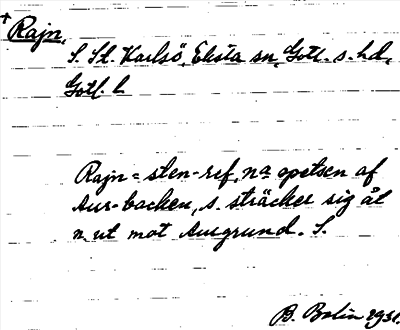 Rajn,
S. St. Karlsö, Eksta sn, Gotl. s. hd,
Gotl. l
Rajn = sten-ref, na spetsen af
Aur-backen, s. sträcker sig åt
n. ut mot Aurgrund. S.
B. Bolin 1931.